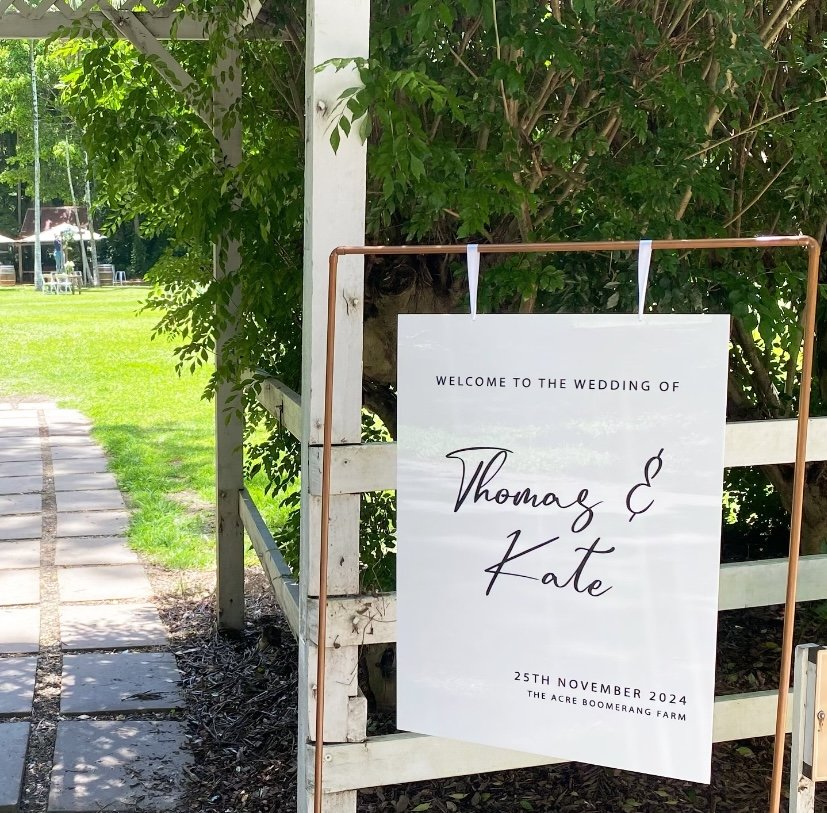 WELCOME TO THE WEDDING OF
Thomas &
Kate
25TH NOVEMBER 2024
THE ACRE BOOMERANG FARM